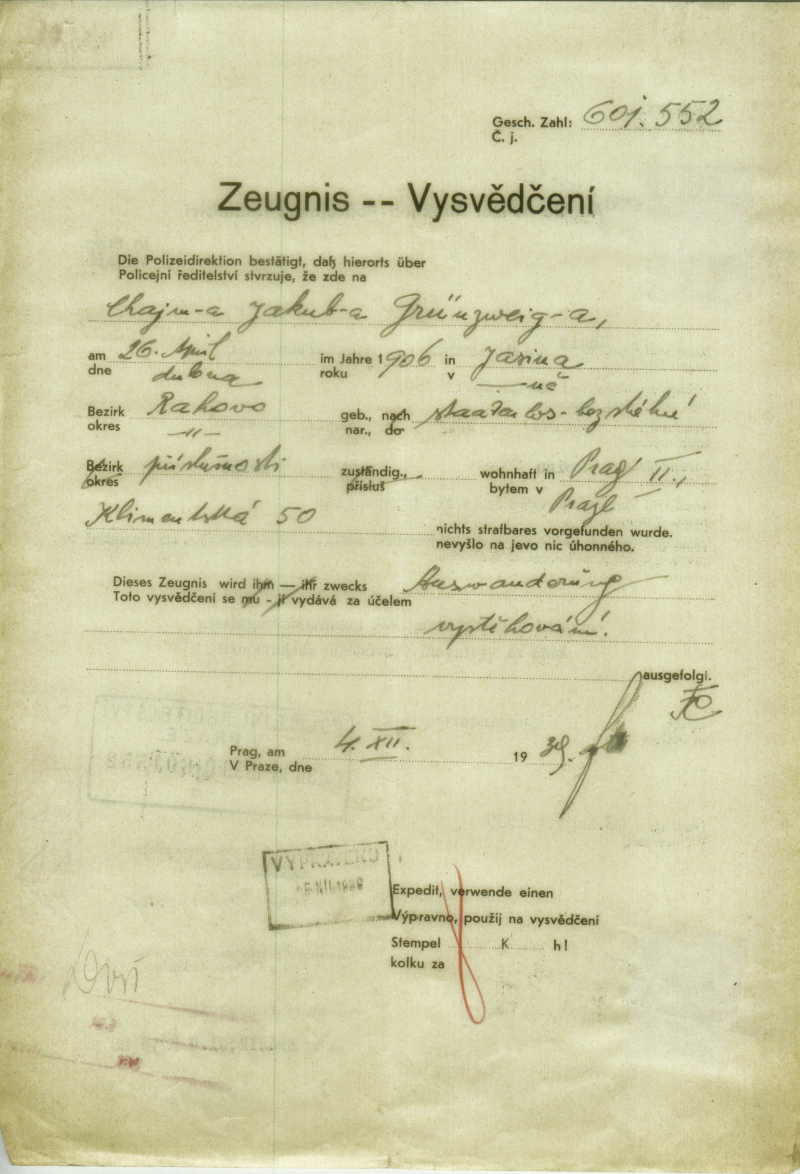 Gesch. Zahl: 601.552
Č. j.
Zeugnis -- Vysvědčení
Die Polizeidirektion bestätigt, daß hierorts über
Policejní ředitelství stvrzuje, že zde na
Chajm-a Jakub-a Grünzweig-a,
am 26. April im Jahre 1906 in Jasina
dne dubna roku v -ně
Bezirk Rahovo geb., nach staatenlos-bezstátní
okres -"- nar., do
Bezirk příslušnosti zuständig., wohnhaft in Prag II.,
okres přísluš bytem v Praze
Klimentská 50
nichts strafbares vorgefunden wurde.
nevyšlo na jevo nic úhonného.
Dieses Zeugnis wird ihm — ihr zwecks Auswanderung
Toto vysvědčení se mu - jí vydává za účelem
vystěhování.
ausgefolgt.
Prag, am 4. XII. 1939.
V Praze, dne
VYPRAVENO
Expedit, verwende einen
Výpravno, použij na vysvědčení
Stempel K h!
kolku za